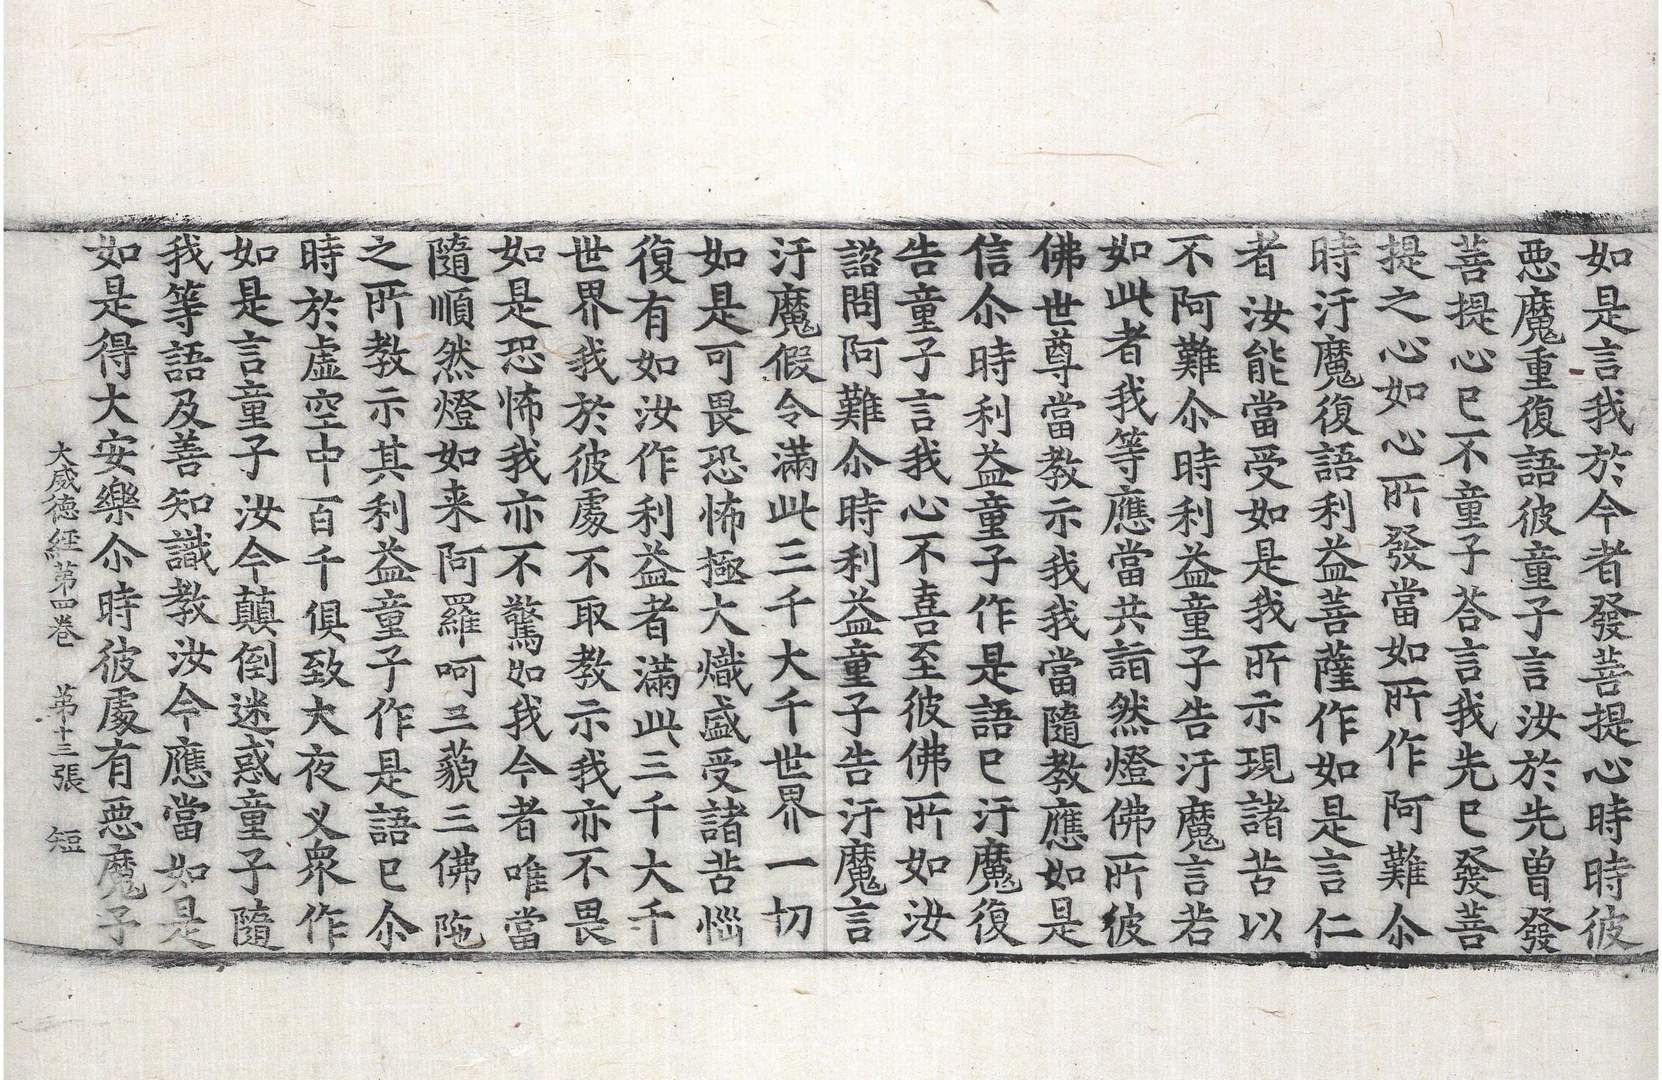 如是言我於今者發菩提心時時彼
惡魔重復語彼童子言汝於先曽發
菩提心已不童子荅言我先已發菩
提之心如心所發當如所作阿難尒
時汙魔復語利益菩薩作如是言仁
者汝能當受如是我所示現諸苦以
不阿難尒時利益童子告汙魔言若
如此者我等應當共詣然燈佛所彼
佛世尊當教示我我當隨教應如是
信尒時利益童子作是語已汙魔復
告童子言我心不喜至彼佛所如汝
諮問阿難尒時利益童子告汙魔言
汙魔假令滿此三千大千世界一切
如是可畏恐怖極大熾盛受諸苦惱
復有如汝作利益者滿此三千大千
世界我於彼處不取教示我亦不畏
如是恐怖我亦不驚如我今者唯當
隨順然燈如来阿羅呵三藐三佛陁
之所教示其利益童子作是語已尒
時於虛空中百千俱致大夜叉衆作
如是言童子汝今顛倒迷惑童子隨
我等語及善知識教汝今應當如是
如是得大安樂尒時彼處有惡魔子
大威德經第四卷 第十三張 短